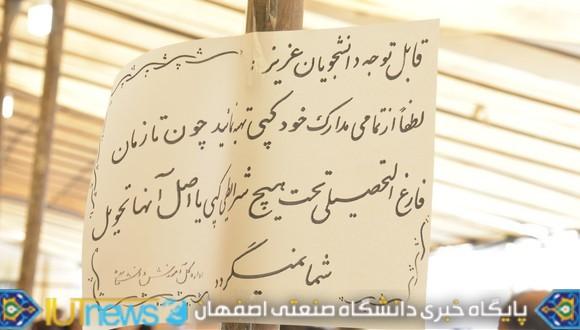 قابل توجه دانشجویان عزیز :
لطفاً از تمامی مدارک خود کپی تهیه نمائید چون تا زمان
فارغ التحصیلی تحت هیچ شرایطی کپی یا اصل آنها تحویل
شما نمیگردد
اداره کل آموزش دانشگاه
IUTnews پایگاه خبری دانشگاه صنعتی اصفهان